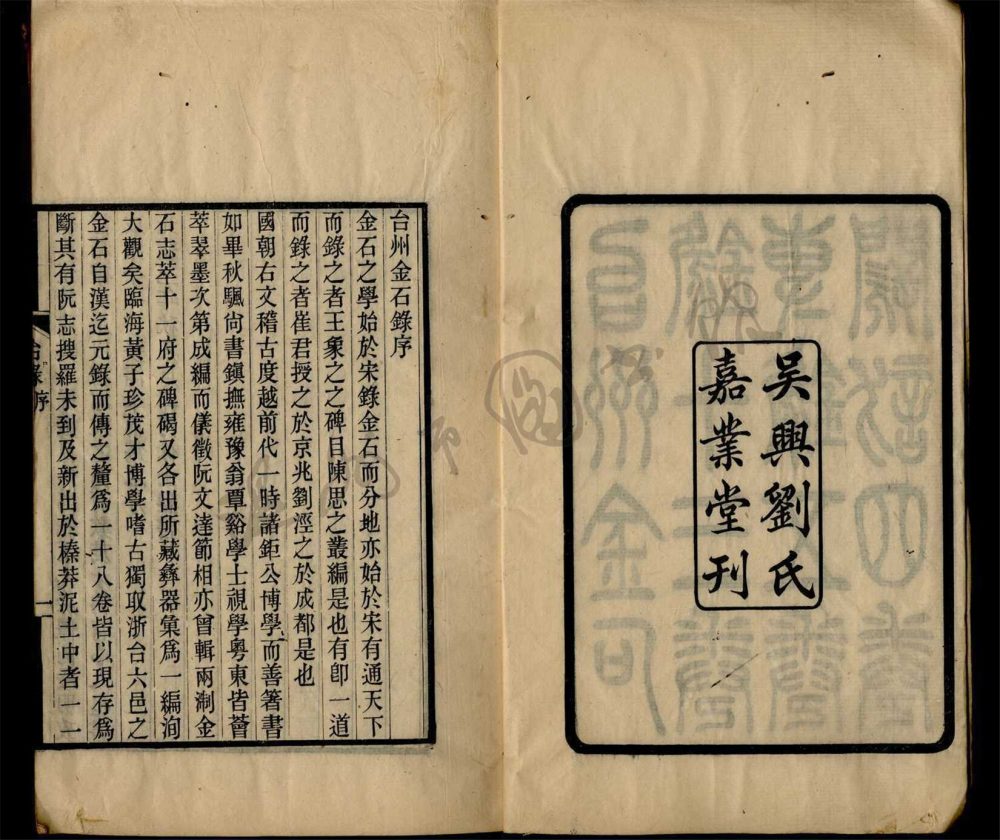 吳興劉氏
嘉業堂刊
台州金石錄序
金石之學始於宋錄金石而分地亦始於宋有通天下
而錄之者王象之之碑目陳思之叢編是也有卽一道
而錄之者崔君授之於京兆劉涇之於成都是也
國朝右文稽古度越前代一時諸鉅公博學而善箸書
如畢秋颿尙書鎭撫雍豫翁覃谿學士視學粵東皆薈
萃翠墨次第成編而儀徵阮文達節相亦曾輯兩淛金
石志萃十一府之碑碣又各出所藏彝器彙爲一編洵
大觀矣臨海黃子珍茂才博學嗜古獨取浙台六邑之
金石自漢迄元錄而傳之釐爲一十八卷皆以現存爲
斷其有阮志搜羅未到及新出於榛莽泥土中者一一
台錄序
一